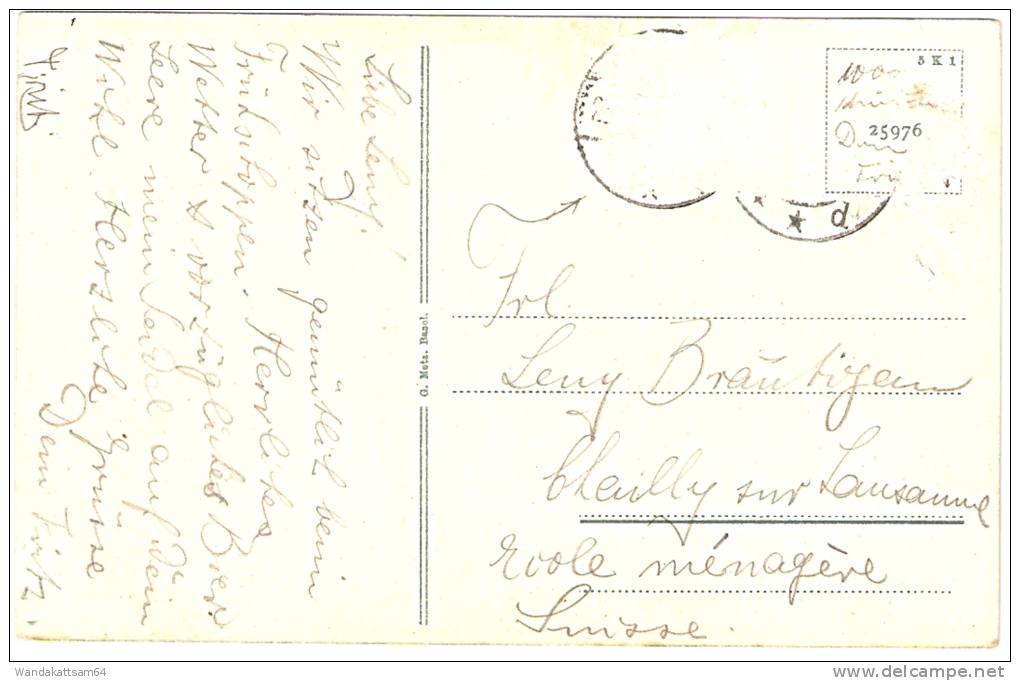 Liebe Leny!
Wir sitzen gemütlich beim
Frühschoppen. Herrliches
Wetter & vorzügliches Bier.
Leere mein Seidel auf Dein
Wohl. Herzliche Grüsse
Dein Fritz.
5 K 1
25976
G. Metz, Basel.
Frl.
Leny Bräutigam
Chailly sur Lausanne
Ecole ménagère
Suisse.
d
Wandakattsam64
delcampe.net